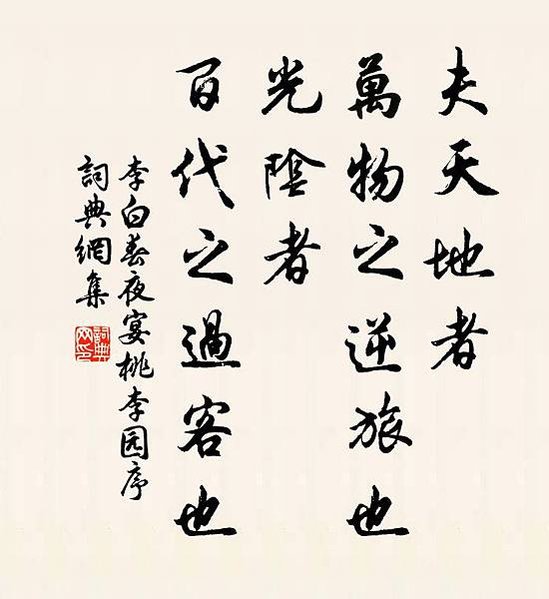 夫天地者
萬物之逆旅也
光陰者
百代之過客也
李白春夜宴桃李园序
詞典網集